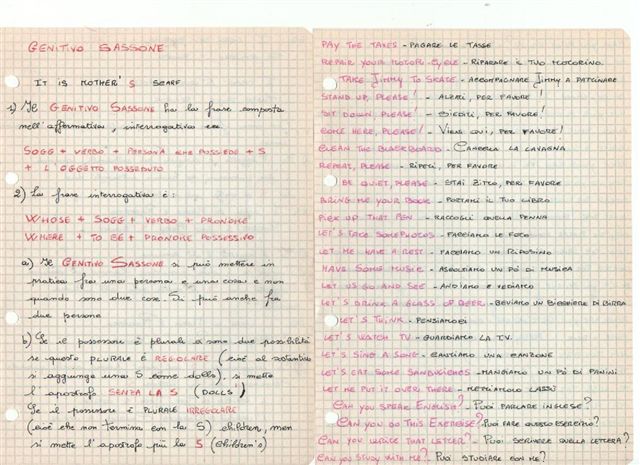 GENITIVO SASSONE
IT IS MOTHER'S SCARF
1) Il GENITIVO SASSONE ha la frase composta
nell'affermativa, interrogativa
SOGG + VERBO + PERSONA CHE POSSIEDE + S
+ L'OGGETTO POSSEDUTO
2) La frase interrogativa è:
WHOSE + SOGG + VERBO + PRONOME
WHERE + TO BE + PRONOME POSSESSIVO
a) Il GENITIVO SASSONE si può mettere in
pratica fra una persona e una cosa e non
quando sono due cose. Si può anche fra
due persone
b) Se il possessore è plurale ci sono due possibilità
se questo PLURALE È REGOLARE (cioè al sostantivo
si aggiunge una S come dolls), si mette
l'apostrofo SENZA LA S (DOLLS')
Se il possessore è PLURALE IRREGOLARE
(cioè che non termina con la S) children, men
si mette l'apostrofo più la S (children's)
PAY THE TAXES - PAGARE LE TASSE
REPAIR YOUR MOTOR-CYCLE - RIPARARE IL TUO MOTORINO
TAKE JIMMY TO SKATE - ACCOMPAGNARE JIMMY A PATTINARE
STAND UP, PLEASE! - ALZATI, PER FAVORE!
SIT DOWN, PLEASE! - SIEDITI, PER FAVORE!
COME HERE, PLEASE! - VIENI QUI, PER FAVORE!
CLEAN THE BLACKBOARD - CANCELLA LA LAVAGNA
REPEAT, PLEASE - RIPETI, PER FAVORE
BE QUIET, PLEASE - STAI ZITTO, PER FAVORE
BRING ME YOUR BOOK - PORTAMI IL TUO LIBRO
PICK UP THAT PEN - RACCOGLI QUELLA PENNA
LET'S TAKE SOME PHOTOS - FACCIAMO LE FOTO
LET ME HAVE A REST - FACCIAMO UN RIPOSINO
HAVE SOME MUSIC - ASCOLTIAMO UN PÒ DI MUSICA
LET US GO AND SEE - ANDIAMO E VEDIAMO
LET'S DRINK A GLASS OF BEER - BEVIAMO UN BICCHIERE DI BIRRA
LET'S THINK - PENSIAMOCI
LET'S WATCH TV - GUARDIAMO LA TV.
LET'S SING A SONG - CANTIAMO UNA CANZONE
LET'S EAT SOME SANDWICHES - MANGIAMO UN PÒ DI PANINI
LET ME PUT IT OVER THERE - METTIAMOLO LASSÙ
CAN YOU SPEAK ENGLISH? - PUOI PARLARE INGLESE?
CAN YOU DO THIS EXERCISE? - PUOI FARE QUESTO ESERCIZIO?
CAN YOU WRITE THAT LETTER? - PUOI SCRIVERE QUELLA LETTERA?
CAN YOU STUDY WITH ME? - PUOI STUDIARE CON ME?